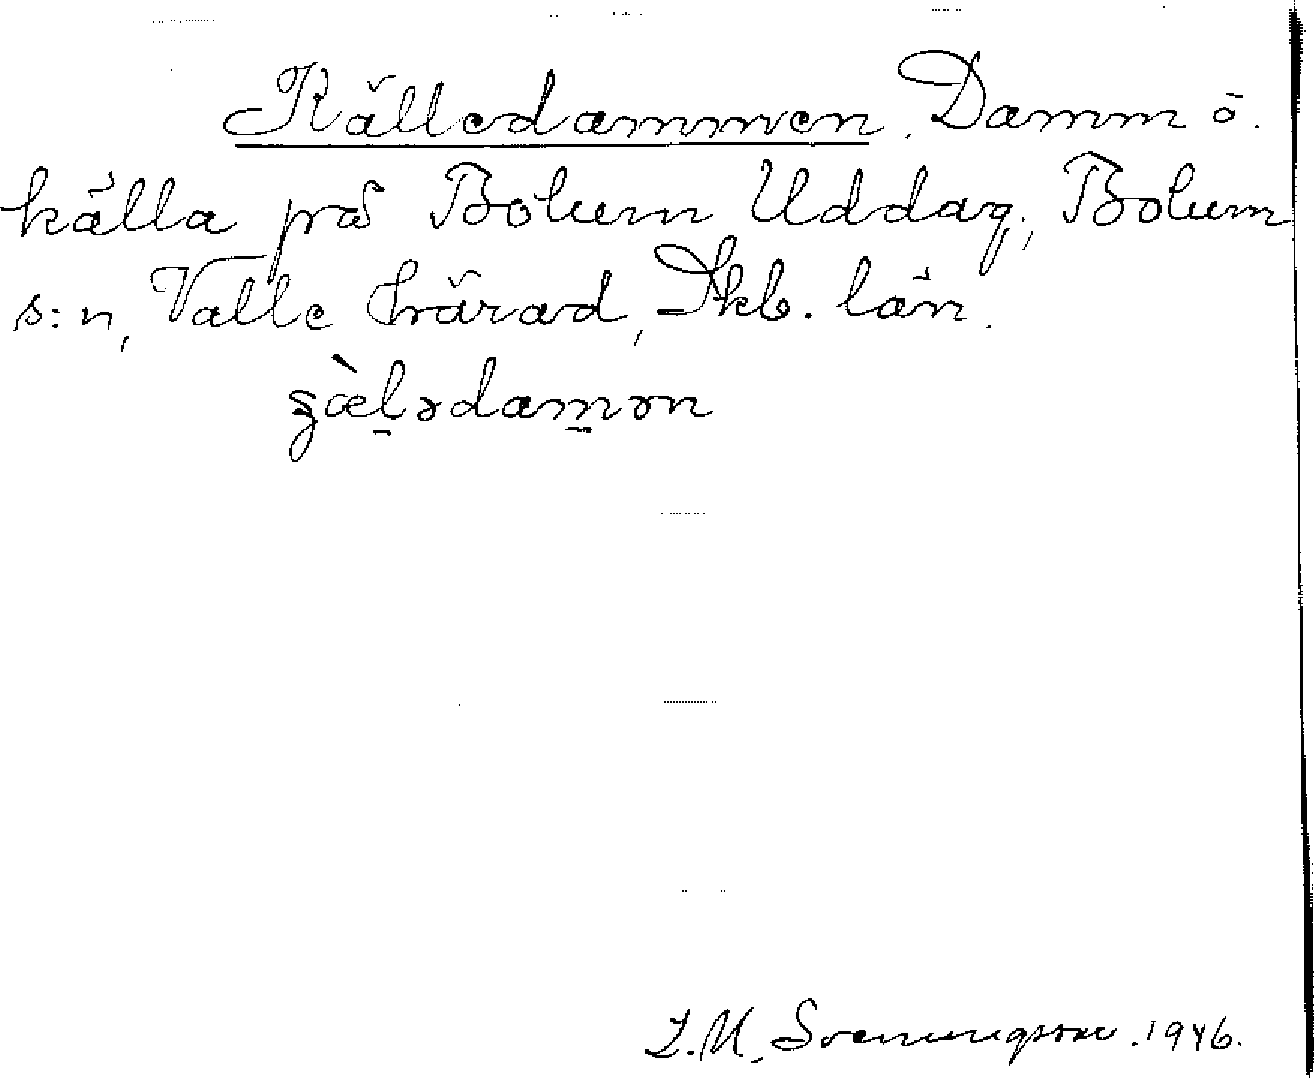 Källedammen. Damm o.
källa på Bolum Uddag., Bolum
s:n, Valle härad, Skb. län.
ʂæ̀l̠ədam̠ən
I.M. Svenningsson. 1946.